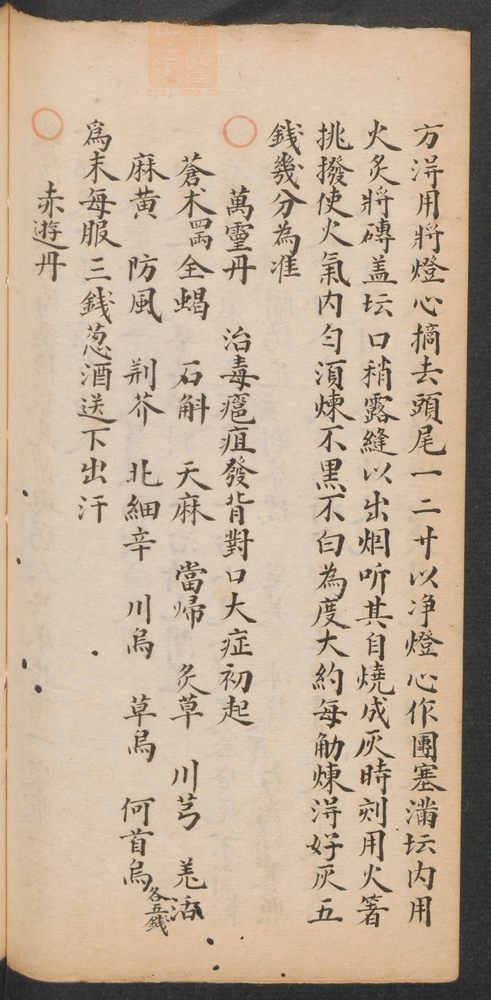 方洴用將燈心摘去頭尾一二寸以净燈心作團塞滿坛内用
火炙將磚盖坛口稍露縫以出烟听其自燒成灰時刻用火箸
挑撥使火氣内匀湏煉不黒不白為度大約每觔煉洴好灰五
錢幾分為准
○ 萬霊丹 治毒癰疽發背對口大症初起
蒼术 全蝎 石斛 天麻 當歸 炙草 川芎 羌活
麻黄 防風 荆芥 北細辛 川烏 草烏 何首烏 各五錢
為末每服三錢葱酒送下出汗
○ 赤遊丹